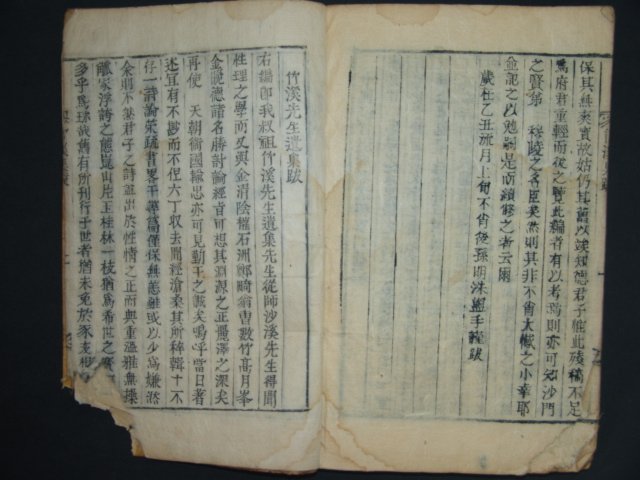 保其無來實故姑仍其舊以竢知德君子惟此殘稿不足
爲府君重輕而後之覽此編者有以考焉則亦可知沙門
之賢弟 穆陵之名臣矣然則其非不肖大慨之小幸耶
金記之以勉嗣是而續修之者云爾
歲在乙丑流月上旬不肖後孫明洙盥手謹跋
竹溪先生遺集跋
右編卽我叔祖竹溪先生遺集先生從師沙溪先生得聞
性理之學而又與金渭陰權石洲鄭畸翁曺數竹高月峯
金 諸名勝討論經旨可想其淵源之正麗澤之深矣
再使 天朝衛國輸忠亦可見勤王之誠矣嗚呼當日著
述宜有不尠而不但六丁取去閱經滄桑其所稗輯十不
存一詩論策疏書畧干等篇僅保無恙雖或以少爲嫌然
余則不 君子之詩 出於性情之正而與重溫推無操
觚家浮誇之態崑山片玉桂林一枝猶爲希世之寶
多乎爲 哉舊有所刊行于世者猶未免於豕